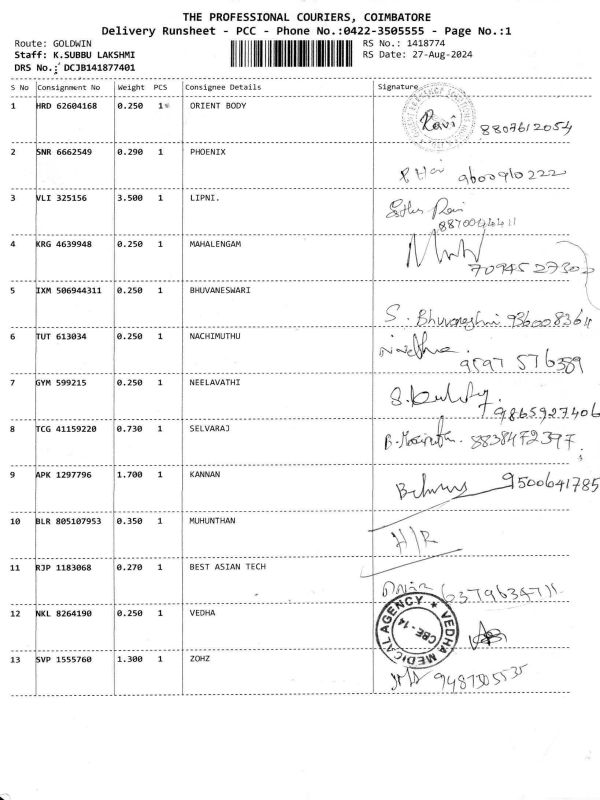 THE PROFESSIONAL COURIERS, COIMBATORE
Delivery Runsheet - PCC - Phone No.:0422-3505555 - Page No.:1
Route: GOLDWIN RS No.: 1418774
Staff: K.SUBBU LAKSHMI RS Date: 27-Aug-2024
DRS No.: DCJB141877401
S No Consignment No Weight PCS Consignee Details Signature
1 HRD 62604168 0.250 1 ORIENT BODY
Ravi 8807612054
2 SNR 6662549 0.290 1 PHOENIX
9600910222
3 VLI 325156 3.500 1 LIPNI.
4 KRG 4639948 0.250 1 MAHALENGAM
5 IXM 506944311 0.250 1 BHUVANESWARI
S. 
6 TUT 613034 0.250 1 NACHIMUTHU
9597 576389
7 GYM 599215 0.250 1 NEELAVATHI
9865927406
8 TCG 41159220 0.730 1 SELVARAJ
8838472397
9 APK 1297796 1.700 1 KANNAN
9500641785
10 BLR 805107953 0.350 1 MUHUNTHAN
H/R
11 RJP 1183068 0.270 1 BEST ASIAN TECH
12 NKL 8264190 0.250 1 VEDHA
VEDHA MEDICAL AGENCY
CBE - 14
13 SVP 1555760 1.300 1 ZOHZ